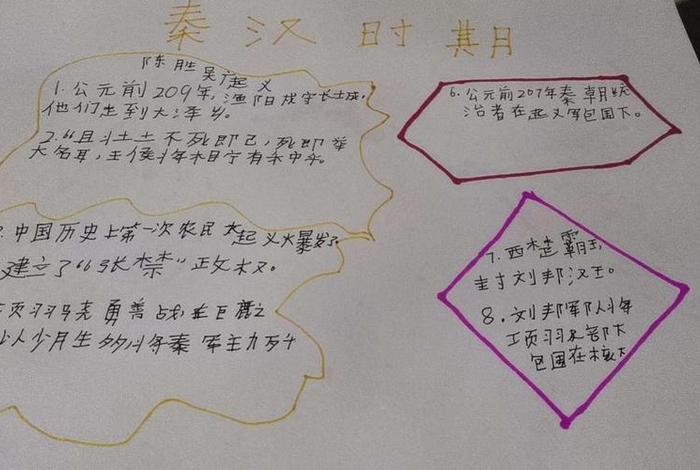 秦汉时期
陈胜吴广起义
1.公元前209年,渔阳戍守长土成,
他们走到大泽乡。
2."且斗土土不死即己,死即举
大名耳,王侯将相宁有
中国历史上第一次农民大起义大暴发了
建立了"张禁"政权。
项羽 勇善战,在巨鹿之
以少月生多 将秦军主力歼
6.公元前207年秦朝统
治者在起义军包围下。
7.西楚霸王
封刘邦汉王。
8.刘邦军队将
项羽及部下
包围在核下